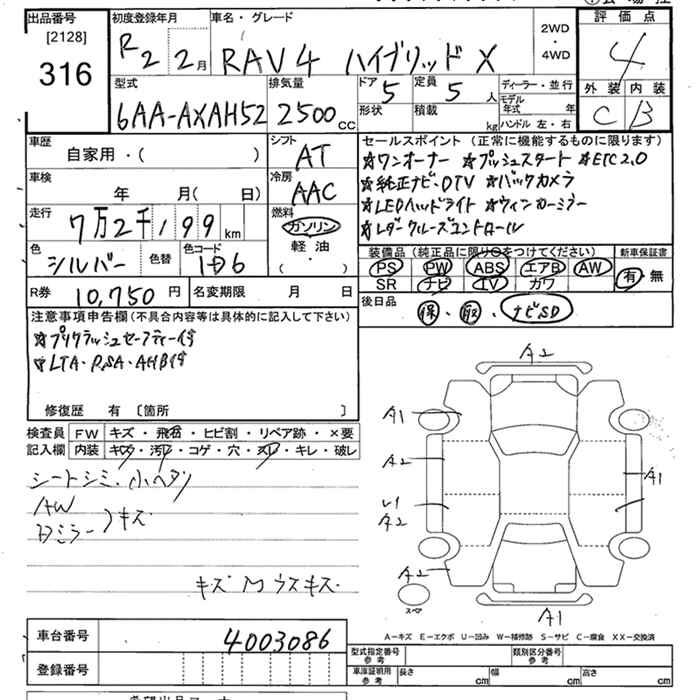 出品番号
[2128]
316
初度登録年月
R2 2月
車名・グレード
RAV4 ハイブリッド X
2WD
・
4WD
評価点
4
外装 内装
C B
型式
6AA-AXAH52
排気量
2500cc
ドア
5
形状
定員
5人
積載
kg
ディーラー・並行
モデル年式 年
ハンドル 左・右
車歴
自家用・( )
シフト
AT
車検
年 月( 日)
冷房
AAC
走行
7万2千199km
燃料
ガソリン
軽油
( ・ )
色
シルバー
色替
色コード
1D6
R券
10,750円
名変期限 月 日
セールスポイント (正常に機能するものに限ります)
☆ワンオーナー ☆プッシュスタート ☆ETC2.0
☆純正ナビ、DTV ☆バックカメラ
☆LEDヘッドライト ☆ウィンカーミラー
☆レダークルーズコントロール
装備品 (純正品に限り○をつけてください)
PS PW ABS エアB AW
SR ナビ TV カワ
新車保証書
有・無
後日品
保・取・ナビSD
注意事項申告欄 (不具合内容等は具体的に記入して下さい)
☆プリクラッシュセーフティー付
☆LTA・RSA・AHB付
修復歴 有 〔箇所 〕
検査員記入欄
FW キズ・飛石・ヒビ割・リペア跡・×要
内装 キズ・汚レ・コゲ・穴・スレ・キレ・破レ
シートシミ・小ヘタリ
AW
Dミラー キズ
キズ M ウスキズ
A2
A1
A2
A1
A2
A2
A1
スペア
A-キズ E-エクボ U-凹み W-補修跡 S-サビ C-腐食 XX-交換済
車台番号
4003086
登録番号
型式指定番号
参考
類別区分番号
参考
車庫証明用
参考
長さ cm
幅 cm
高さ cm